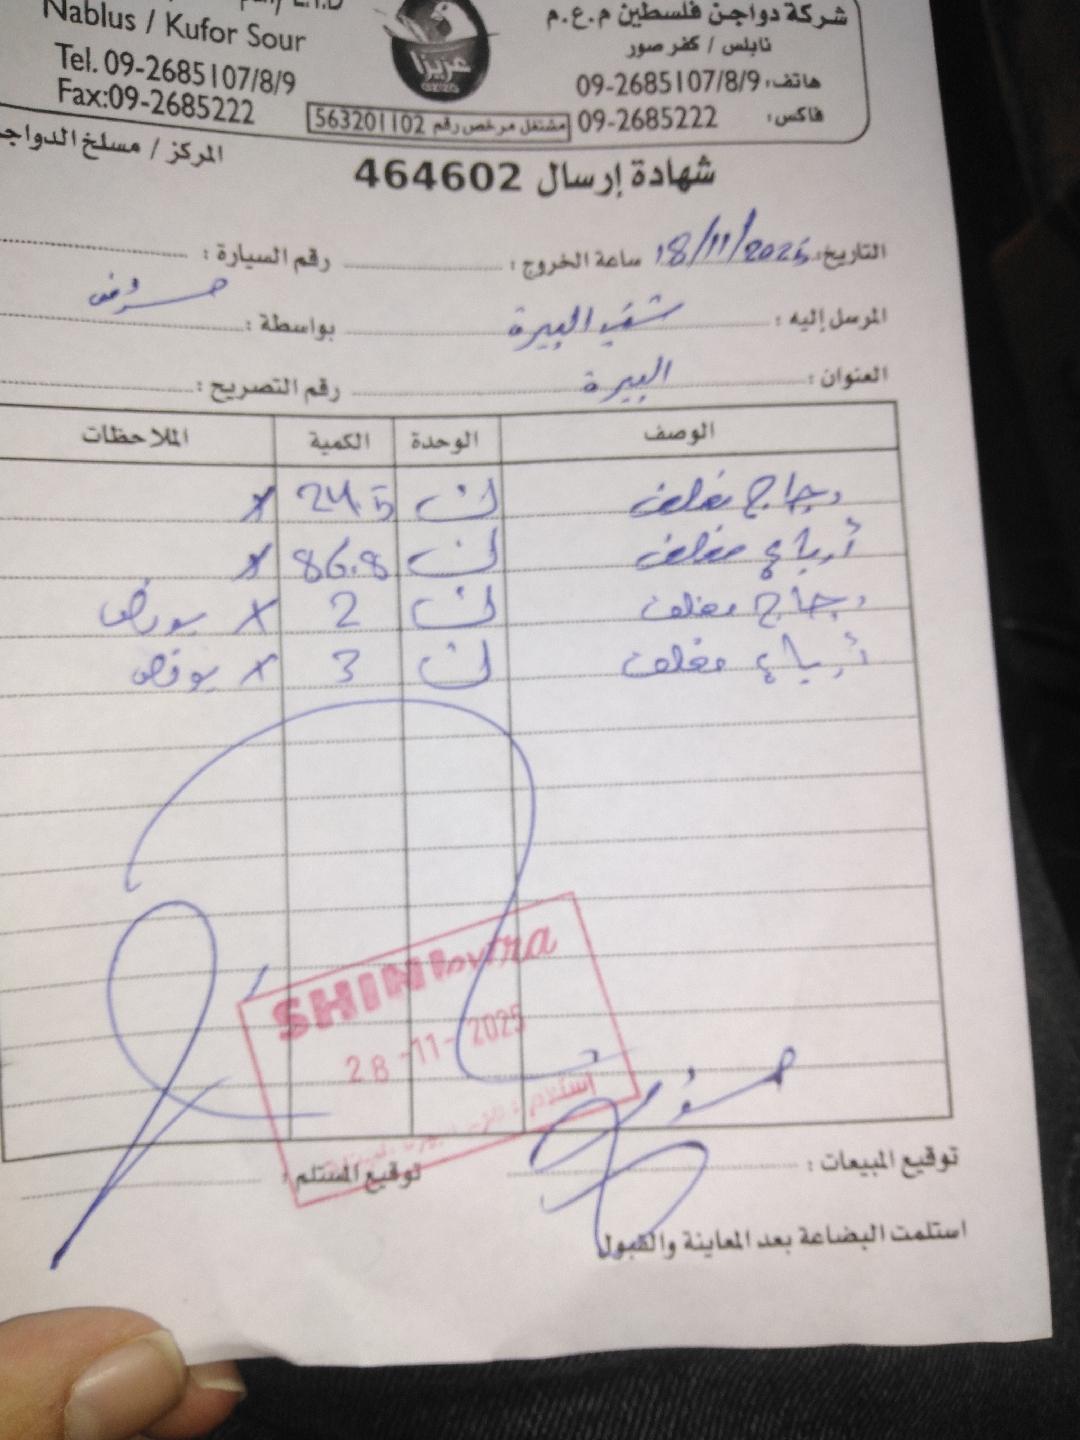 Nablus / Kufor Sour
Tel. 09-2685107/8/9
Fax:09-2685222
عزيزا
شركة دواجن فلسطين م.ع.م
نابلس / كفر صور
هاتف: 09-2685107/8/9
فاكس: 09-2685222
مشتغل مرخص رقم 563201102
المركز / مسلخ الدواجن
شهادة إرسال 464602
التاريخ: 18/11/2025 ساعة الخروج: رقم السيارة:
المرسل إليه: البيرة بواسطة:
العنوان: البيرة رقم التصريح:
الوصف الوحدة الكمية الملاحظات
دجاج مغلف ك 24.5 x
أرباع مغلف ك 86.8 x
دجاج مغلف ك 2 x
أرباع مغلف ك 3 x
SHINI extra
28-11-2025
إستلام
توقيع المبيعات: توقيع المستلم:
استلمت البضاعة بعد المعاينة والقبول